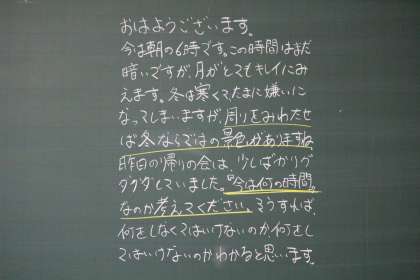 おはようございます。
今は朝の6時です。この時間はまだ
暗いですが、月がとてもキレイにみ
えます。冬は寒くてたまに嫌いに
なってしまいますが、周りをみわたせ
ば冬ならではの景色がありますね。
昨日の帰りの会は、少しばかりグ
ダグダしていました。『今は何の時間』
なのか考えてください。そうすれば、
何をしなくてはいけないのか何をし
てはいけないのかわかると思います。